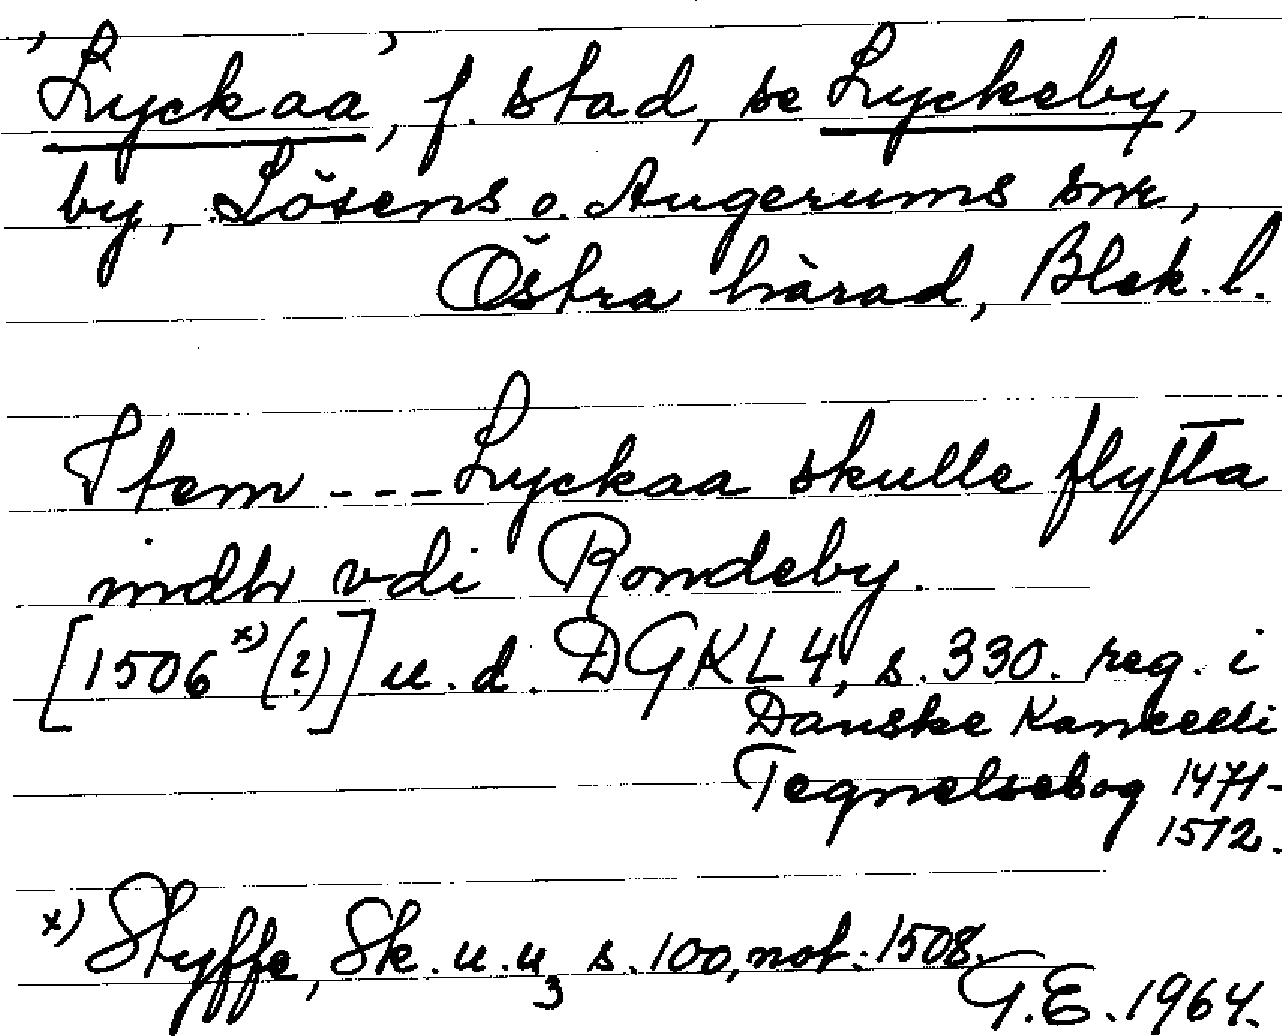 'Lyckaa', f. stad, se Lyckeby,
by, Lösens o. Augerums snr,
Östra härad, Blek. l.
Item --- Lyckaa skulle flytta
indh vdi Rondeby.
[1506 x) (?)] u. d. DGKL 4, s. 330. reg. i
Danske Kancelli
Tegnelsebog 1471-
1512.
x) Styffe, Sk. u. u3 s. 100, not: 1508.
G.E. 1964.